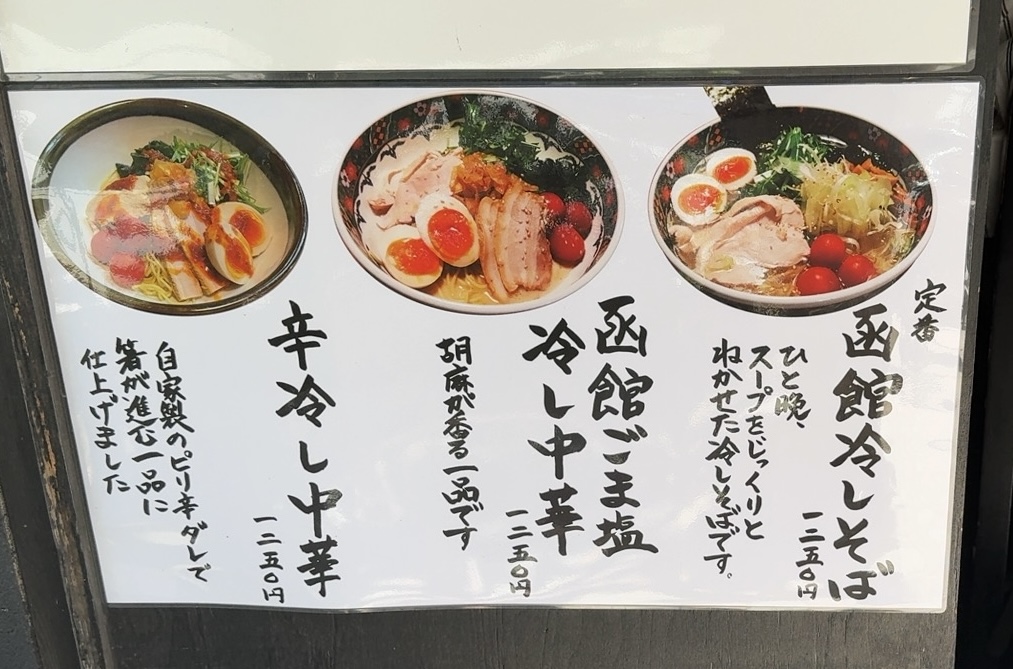 定番
函館冷しそば
一二五〇円
ひと晩、
スープをじっくりと
ねかせた冷しそばです。
函館ごま塩
冷し中華
一二五〇円
胡麻が香る一品です
辛冷し中華
一二五〇円
自家製のピリ辛ダレで
箸が進む一品に
仕上げました